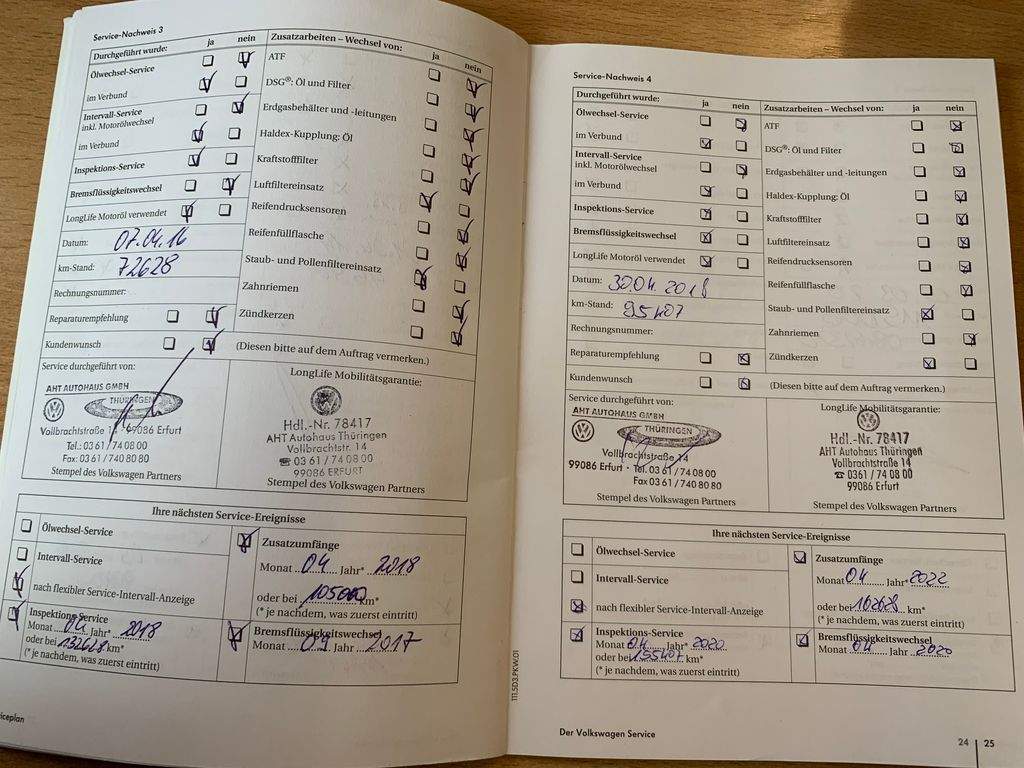 Service-Nachweis 3
Durchgeführt wurde: ja nein
Ölwechsel-Service
im Verbund
Intervall-Service
inkl. Motorölwechsel
im Verbund
Inspektions-Service
Bremsflüssigkeitswechsel
LongLife Motoröl verwendet
Datum: 07.04.16
km-Stand: 72628
Rechnungsnummer:
Reparaturempfehlung
Kundenwunsch
Zusatzarbeiten – Wechsel von: ja nein
ATF
DSG®: Öl und Filter
Erdgasbehälter und -leitungen
Haldex-Kupplung: Öl
Kraftstofffilter
Luftfiltereinsatz
Reifendrucksensoren
Reifenfüllflasche
Staub- und Pollenfiltereinsatz
Zahnriemen
Zündkerzen
(Diesen bitte auf dem Auftrag vermerken.)
Service durchgeführt von:
AHT AUTOHAUS GMBH
THÜRINGEN
Vollbrachtstraße 14 · 99086 Erfurt
Tel.: 03 61 / 74 08 00
Fax: 03 61 / 740 80 80
Stempel des Volkswagen Partners
LongLife Mobilitätsgarantie:
Hdl.-Nr. 78417
AHT Autohaus Thüringen
Vollbrachtstr. 14
☎ 03 61 / 74 08 00
99086 ERFURT
Stempel des Volkswagen Partners
Ihre nächsten Service-Ereignisse
Ölwechsel-Service
Intervall-Service
nach flexibler Service-Intervall-Anzeige
Inspektions-Service
Monat 04 Jahr* 2018
oder bei 132628 km*
(* je nachdem, was zuerst eintritt)
Zusatzumfänge
Monat 04 Jahr* 2018
oder bei 105000 km*
(* je nachdem, was zuerst eintritt)
Bremsflüssigkeitswechsel
Monat 09 Jahr 2017
iceplan
Service-Nachweis 4
Durchgeführt wurde: ja nein
Ölwechsel-Service
im Verbund
Intervall-Service
inkl. Motorölwechsel
im Verbund
Inspektions-Service
Bremsflüssigkeitswechsel
LongLife Motoröl verwendet
Datum: 30.04.2018
km-Stand: 95407
Rechnungsnummer:
Reparaturempfehlung
Kundenwunsch
Zusatzarbeiten – Wechsel von: ja nein
ATF
DSG®: Öl und Filter
Erdgasbehälter und -leitungen
Haldex-Kupplung: Öl
Kraftstofffilter
Luftfiltereinsatz
Reifendrucksensoren
Reifenfüllflasche
Staub- und Pollenfiltereinsatz
Zahnriemen
Zündkerzen
(Diesen bitte auf dem Auftrag vermerken.)
Service durchgeführt von:
AHT AUTOHAUS GMBH
THÜRINGEN
Vollbrachtstraße 14
99086 Erfurt · Tel. 03 61 / 74 08 00
Fax 03 61 / 740 80 80
Stempel des Volkswagen Partners
LongLife Mobilitätsgarantie:
Hdl.-Nr. 78417
AHT Autohaus Thüringen
Vollbrachtstraße 14
☎ 03 61 / 74 08 00
99086 Erfurt
Stempel des Volkswagen Partners
Ihre nächsten Service-Ereignisse
Ölwechsel-Service
Intervall-Service
nach flexibler Service-Intervall-Anzeige
Inspektions-Service
Monat 04 Jahr* 2020
oder bei 155407 km*
(* je nachdem, was zuerst eintritt)
Zusatzumfänge
Monat 04 Jahr* 2022
oder bei 162628 km*
(* je nachdem, was zuerst eintritt)
Bremsflüssigkeitswechsel
Monat 04 Jahr 2020
111.5D3.PKW.01
Der Volkswagen Service
24 25